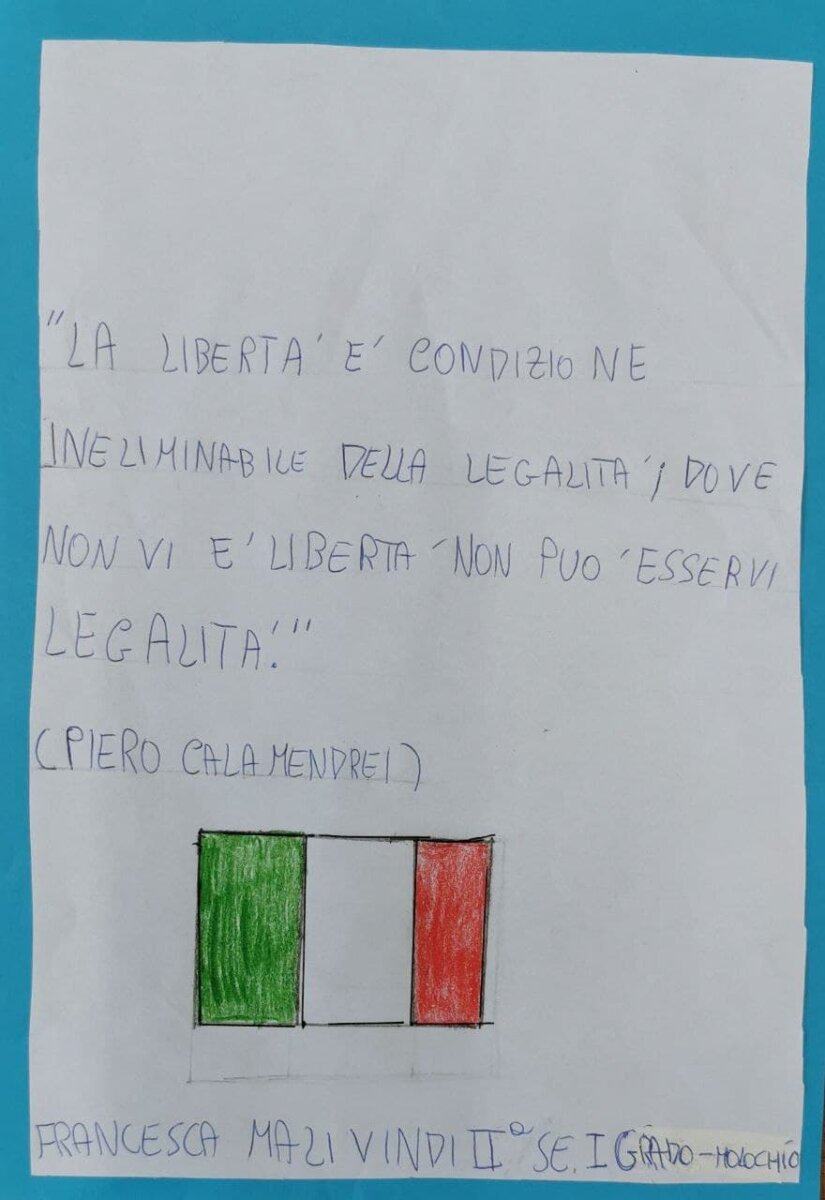 "LA LIBERTA' E' CONDIZIONE
INELIMINABILE DELLA LEGALITA'; DOVE
NON VI E' LIBERTA' NON PUO' ESSERVI
LEGALITA'."
(PIERO CALAMENDREI)
FRANCESCA MALIVINDI IIª SE. I GRADO-MOLOCHIO